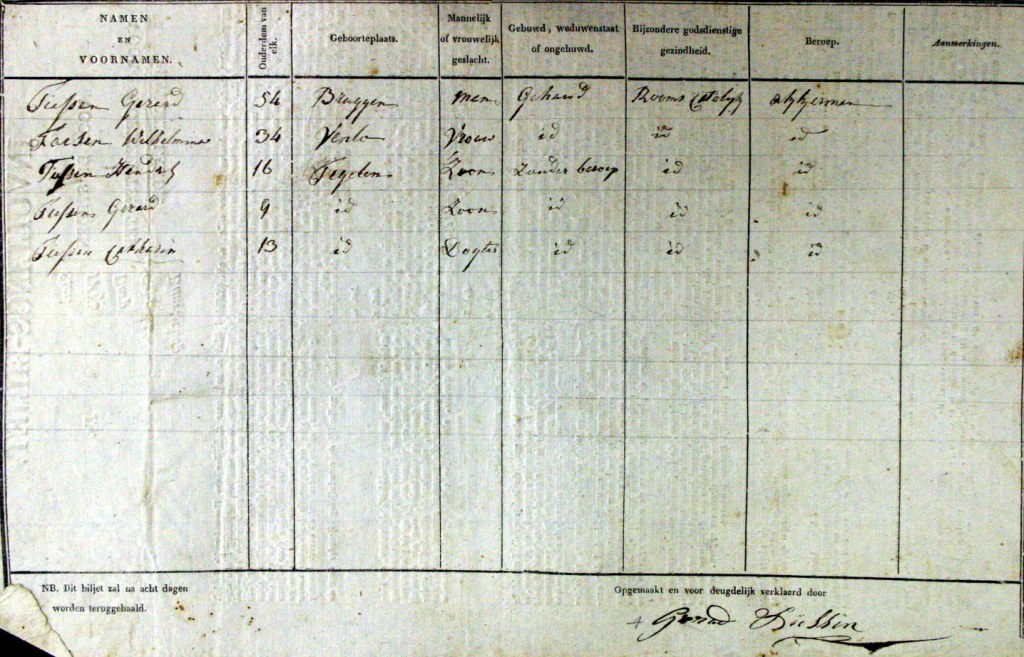 NAMEN EN VOORNAMEN. Ouderdom van elk. Geboorteplaats. Mannelijk of vrouwelijk geslacht. Gehuwd, weduwenstaat of ongehuwd. Bijzondere godsdienstige gezindheid. Beroep. Aanmerkingen.
Tiessen Gerard 54 Bruggen man Gehaud Rooms Catolyk akkerman
Wilhelmina 34 Venlo Vrouw id id id
Tiessen Hendrik 16 Tegelen Zoon Zonder beroep id id
Tiessen Gerard 9 id Zoon id id id
Tiessen Catharin 13 id Dogter id id id
NB. Dit biljet zal na acht dagen
worden teruggehaald.
Opgemaakt en voor deugdelijk verklaard door
+ Gerard Tiessen